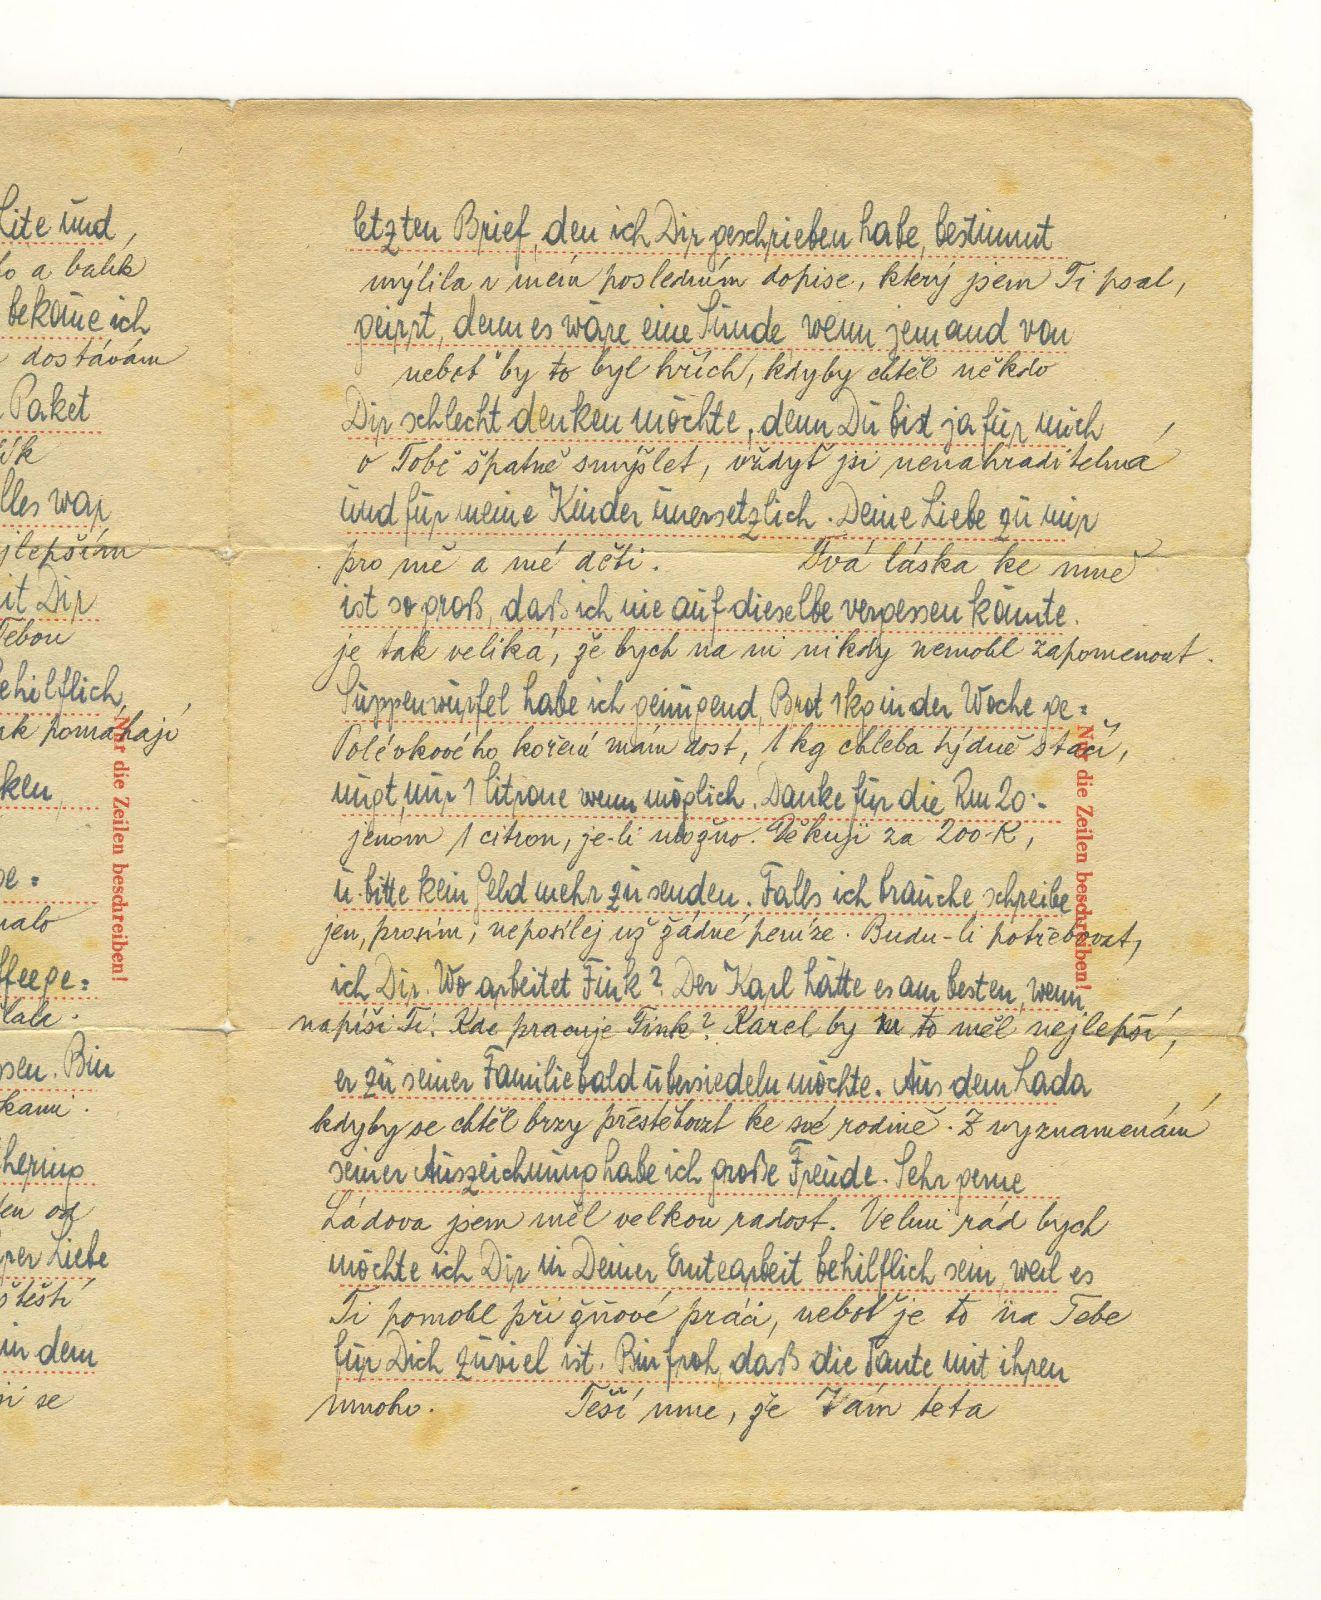 Lite und
o a balík
bekome ich
dostávám
Paket
ík
lles war
jlepším
it Dir
Tebou
ehilflich,
ak pomáhají
ken
ge=
malo
ffeege=
ssen. Bin
kami.
hering
en od
rer Liebe
štěstí
in dem
ni se
Nur die Zeilen beschreiben!
letzten Brief, den ich Dir geschrieben habe, bestimmt
mýlila v mém posledním dopise, který jsem Ti psal,
geirrt, denn es wäre eine Sünde, wenn jemand von
neboť by to byl hřích, kdyby chtěl někdo
Dir schlecht denken möchte, denn Du bist ja für mich
o Tobě špatně smýšlet, vždyť jsi nenahraditelná
und für meine Kinder unersetzlich. Deine Liebe zu mir
pro mě a mé děti. Tvá láska ke mně
ist so groß, daß ich nie auf dieselbe vergessen könnte.
je tak veliká, že bych na ni nikdy nemohl zapomenout.
Suppenwürfel habe ich genügend, Brot 1kg in der Woche ge=
Polévkového koření mám dost, 1 kg chleba týdně stačí,
nügt, nur 1 litrone wenn möglich. Danke für die Rm 20.-
jenom 1 citron, je-li možno. Děkuji za 200-K,
u. bitte kein Geld mehr zu senden. Falls ich brauche, schreibe
jen, prosím, neposílej už žádné peníze. Budu-li potřebovat,
ich Dir. Wo arbeitet Fink? Der Karl hätte es am besten, wenn
napíši Ti. Kde pracuje Fink? Karel by to měl nejlepší,
er zu seiner Familie bald übersiedeln möchte. Aus dem Lada
kdyby se chtěl brzy přestěhovat ke své rodině. Z vyznamenání
seiner Auszeichnung habe ich große Freude. Sehr gerne
Ládova jsem měl velkou radost. Velmi rád bych
möchte ich Dir in Deiner Erntearbeit behilflich sein, weil es
Ti pomohl při žňové práci, neboť je to na Tebe
für Dich zuviel ist. Bin froh, daß die Tante mit ihren
mnoho. Těší mne, že Vám teta
Nur die Zeilen beschreiben!